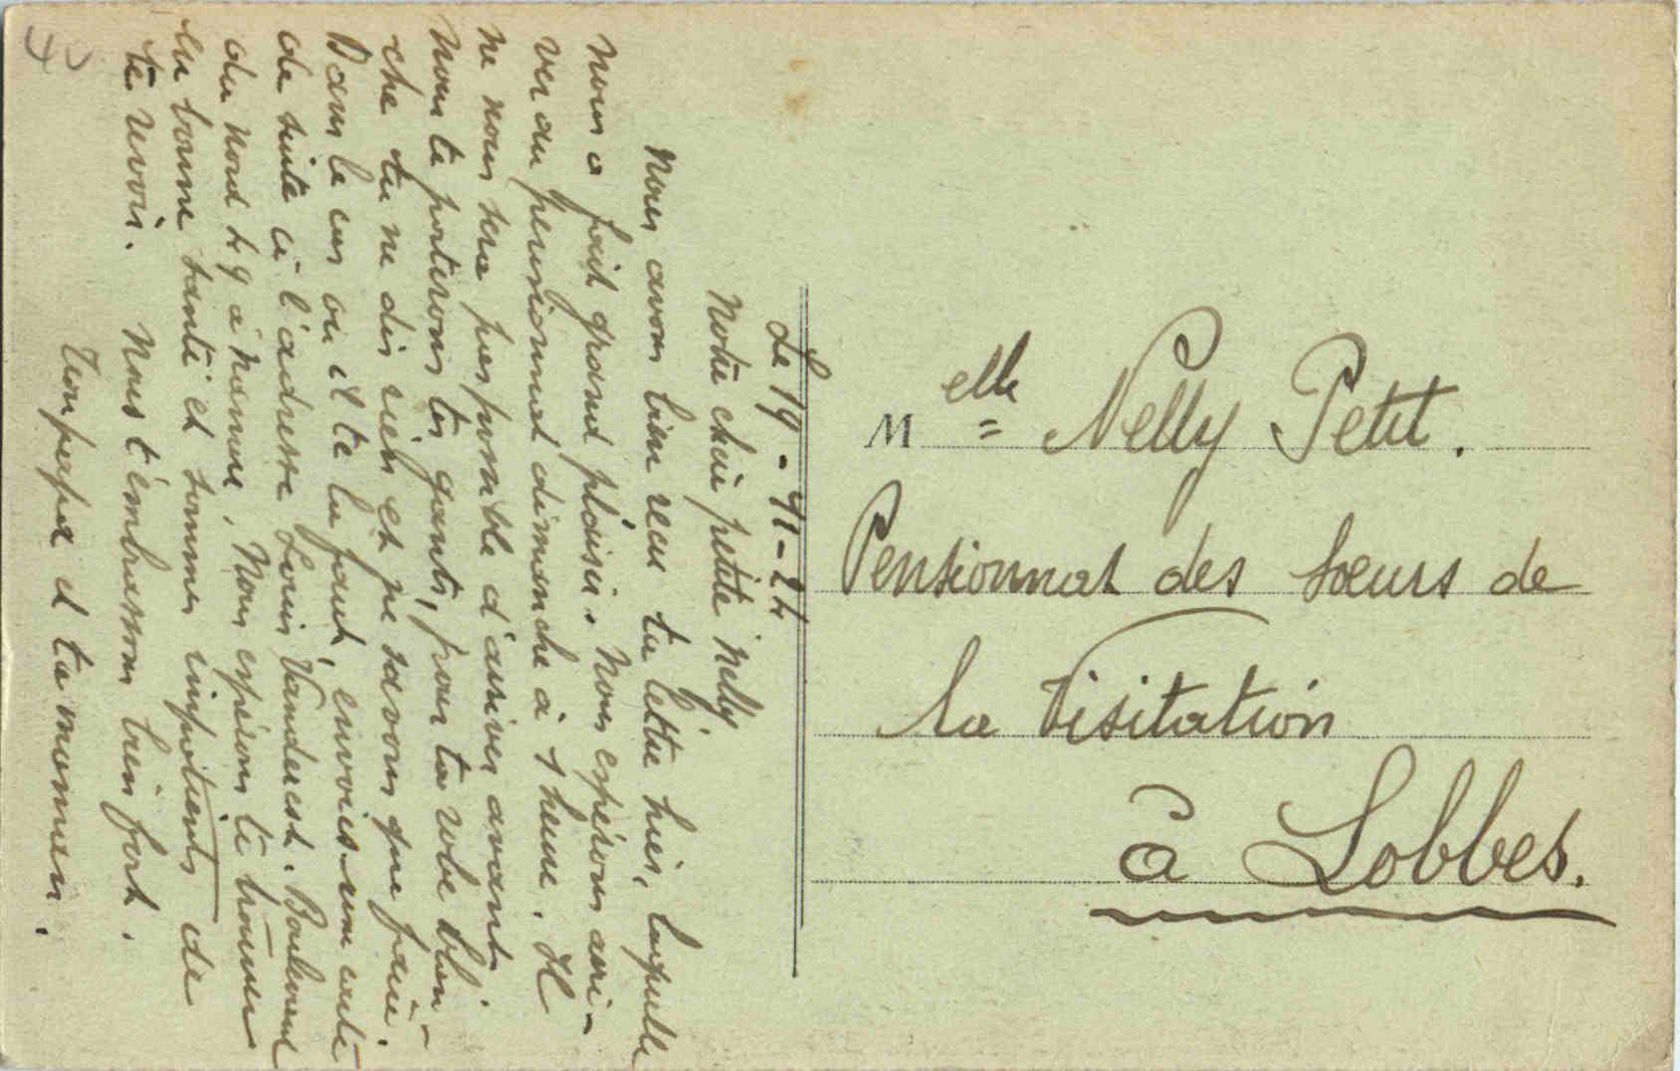 Le 19-11-24
Notre chère petite nelly
Nous avons bien reçu ta lettre hier, laquelle
nous a fait grand plaisir. Nous espérons arri-
ver au pensionnat dimanche à heure. Il
ne nous sera pas possible d'arriver avant
Nous te porterons tes gants, pour ta robe blan-
che tu ne dis rien et ne savons que faire.
Dans le cas où il te la faut, envoies-nous carte
de suite à l'adresse Louis Vanderest. Boulevard
du nord à Namur. Nous espérons te trouver
en bonne santé et sommes impatients de
te revoir. Nous t'embrassons bien fort.
Ton papa et ta maman.
Melle Nelly Petit.
Pensionnat des Sœurs de
la Visitation
à Lobbes.